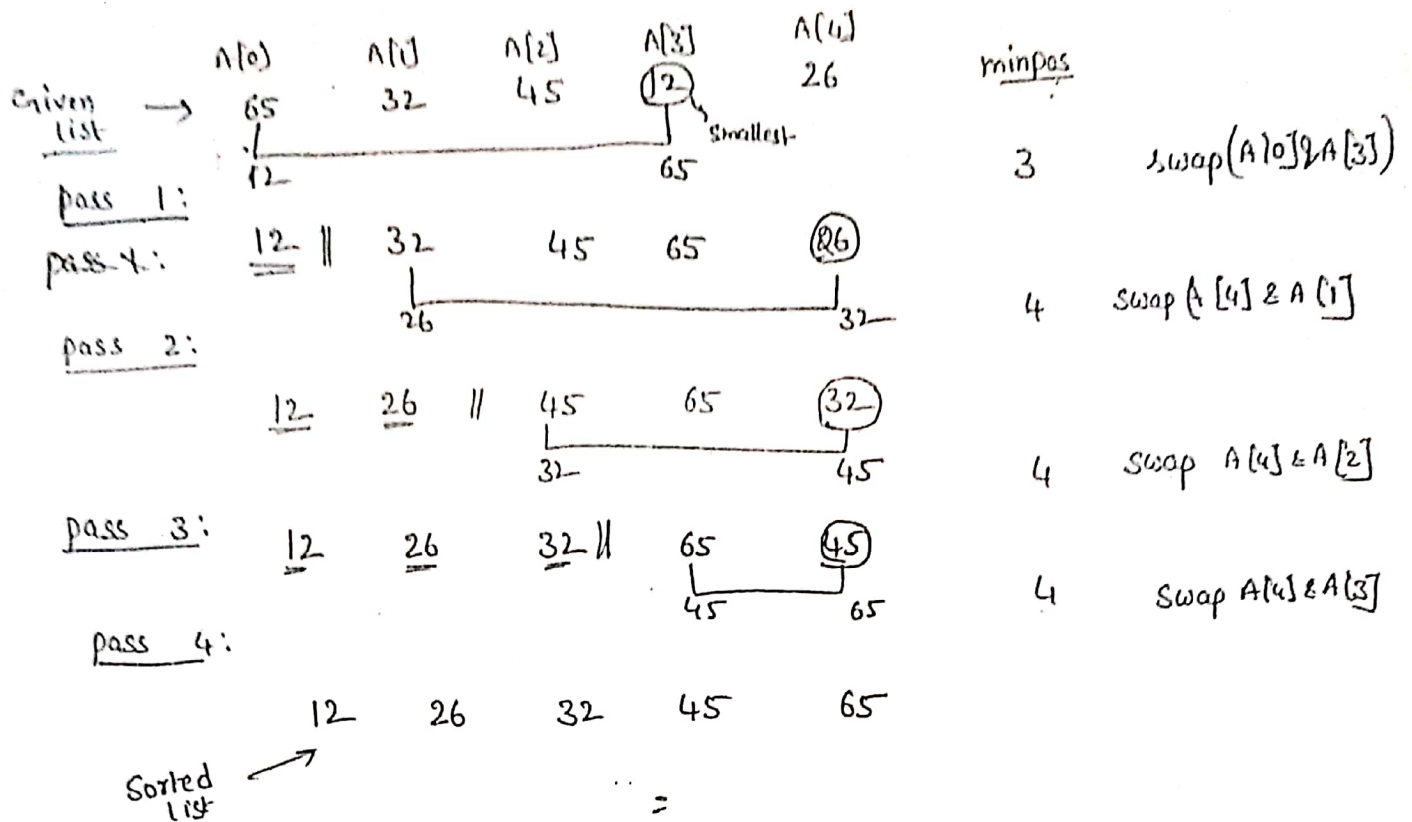 A[0] A[1] A[2] A[3] A[4] minpos
Given list → 65 32 45 12 26
Smallest
12 65 3 swap(A[0]&A[3])
pass 1:
pass 12 || 32 45 65 26
26 32 4 swap A[4] & A[1]
pass 2:
12 26 || 45 65 32
32 45 4 swap A[4] & A[2]
pass 3: 12 26 32 || 65 45
45 65 4 swap A[4] & A[3]
pass 4:
12 26 32 45 65
Sorted list